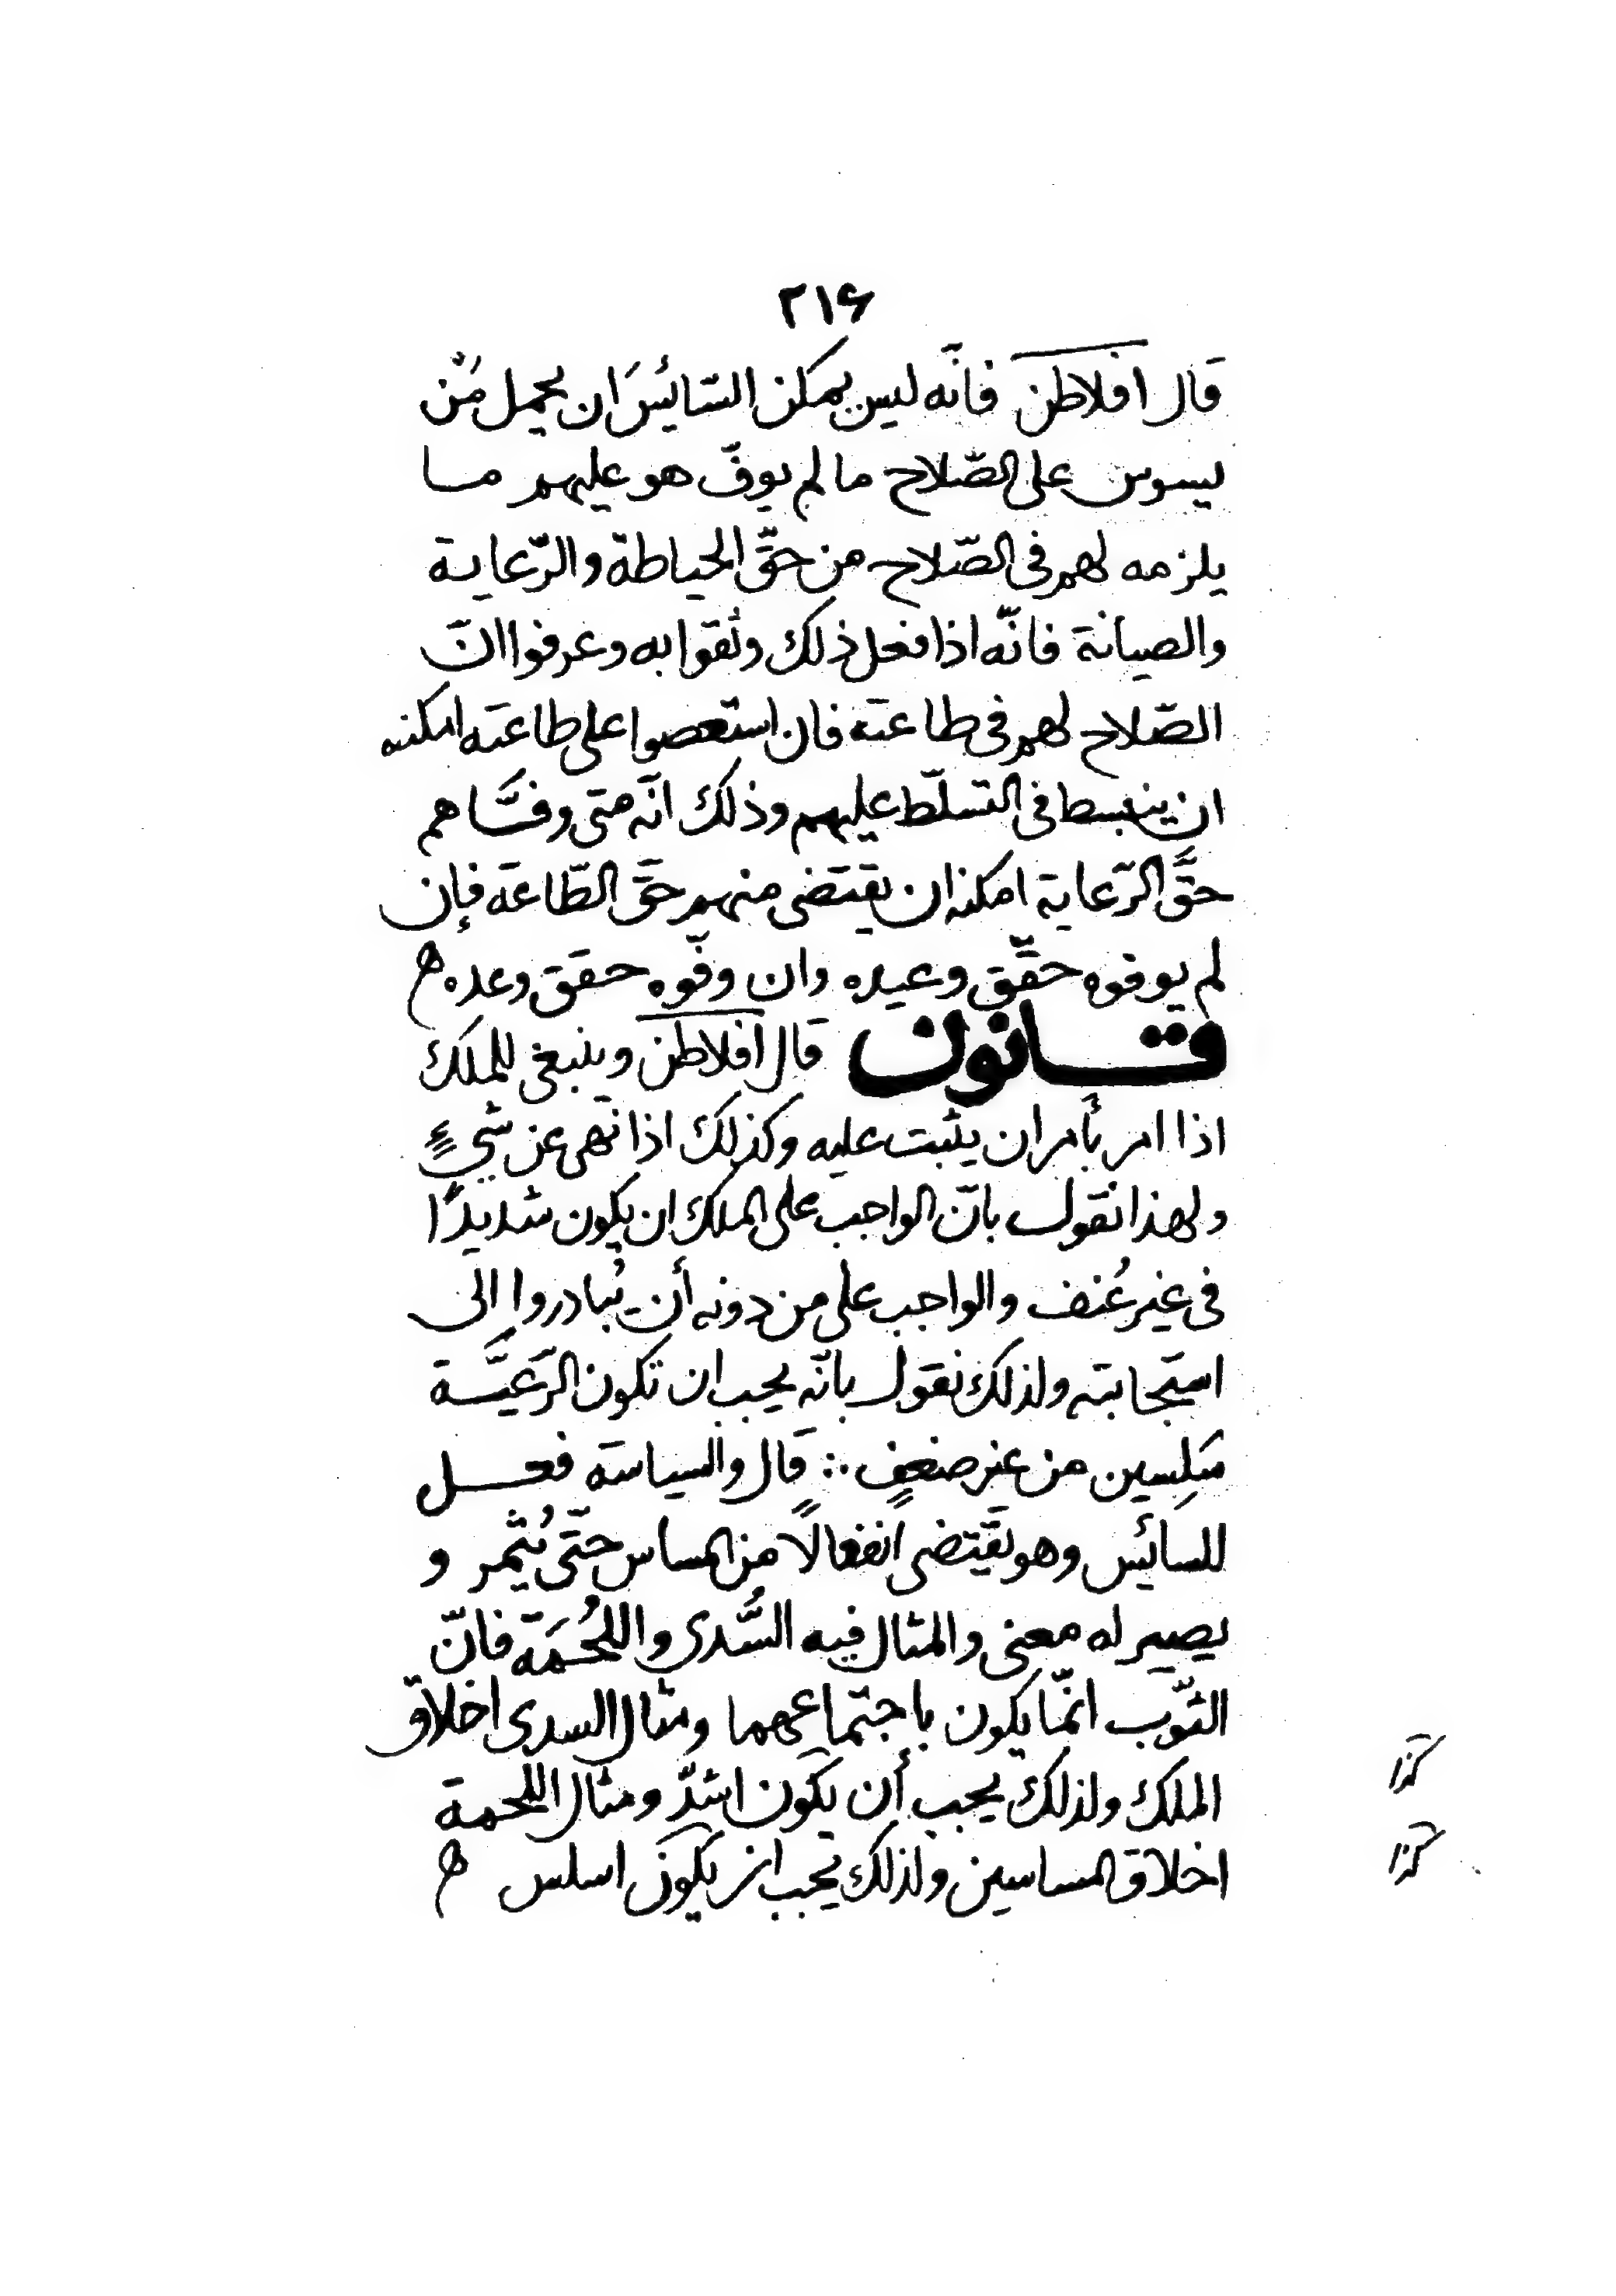 ۲۱۶
قال افلاطن فانّه ليس يمكن السّائسَ ان يحمل مَنْ
يسوس على الصّلاح ما لم يوفّ هو عليهم مـا
يلزمه لهم فى الصّلاح من حقّ الحياطة والرّعايـة
والصيانة فانّه اذا فعل ذلك وثقوا به وعرفوا انّ
الصّلاح لهم فى طاعته فان استعصوا على طاعته امكنه
ان ينبسط فى التسلّط عليهم وذلك انّه متى وفّـاهم
حقَّ الرّعاية امكنه ان يقتضى منهم حقّ الطّاعة فإن
لم يوفوه حقّق وعيده وان وفّوه حقق وعده ه
قـانون قال افلاطن وينبغى للملك
اذا امر بأمر ان يثبت عليه وكذلك اذا نهى عن شيءٍ
ولهذا نقول بانّ الواجب على الملك ان يكون شديدًا
فى غير عُنف والواجب على من دونه أن يُبادروا الى
استجابته ولذلك نقول بانّه يجب ان تكون الرّعيَّـة
سَلِسين من غير ضعفٍ ∴ قال والسياسة فعـل
للسائس وهو يقتضى انفعالًا من المساس حتّى يُثمر و
يصير له معنى والمثال فيه السَّدى واللُحْمَة فانّ
الثّوب انّما يكون باجتماعهما ومثال السدى اخلاق
الملك ولذلك يجب أن يكون اشدّ ومثال اللحمة
اخلاق المساسين ولذلك يجب ان يكون اسلس ه
كذا
كذا